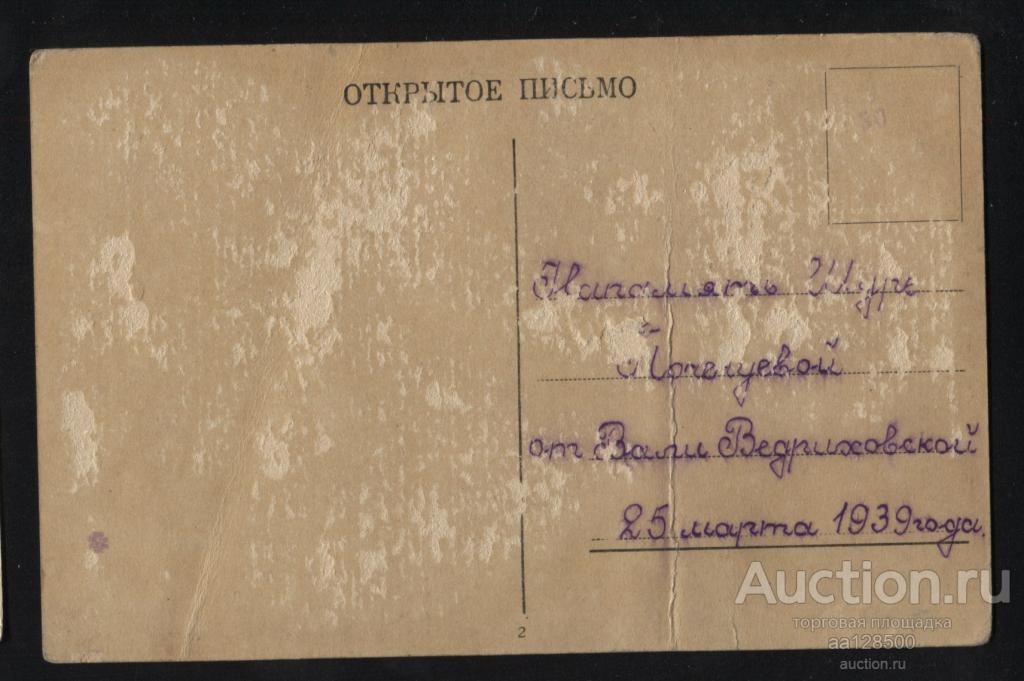 ОТКРЫТОЕ ПИСЬМО
30
Напамять Шуре
от Вали Ведриховской
25 марта 1939 года.
2
Auction.ru
торговая площадка
aa128500
auction.ru